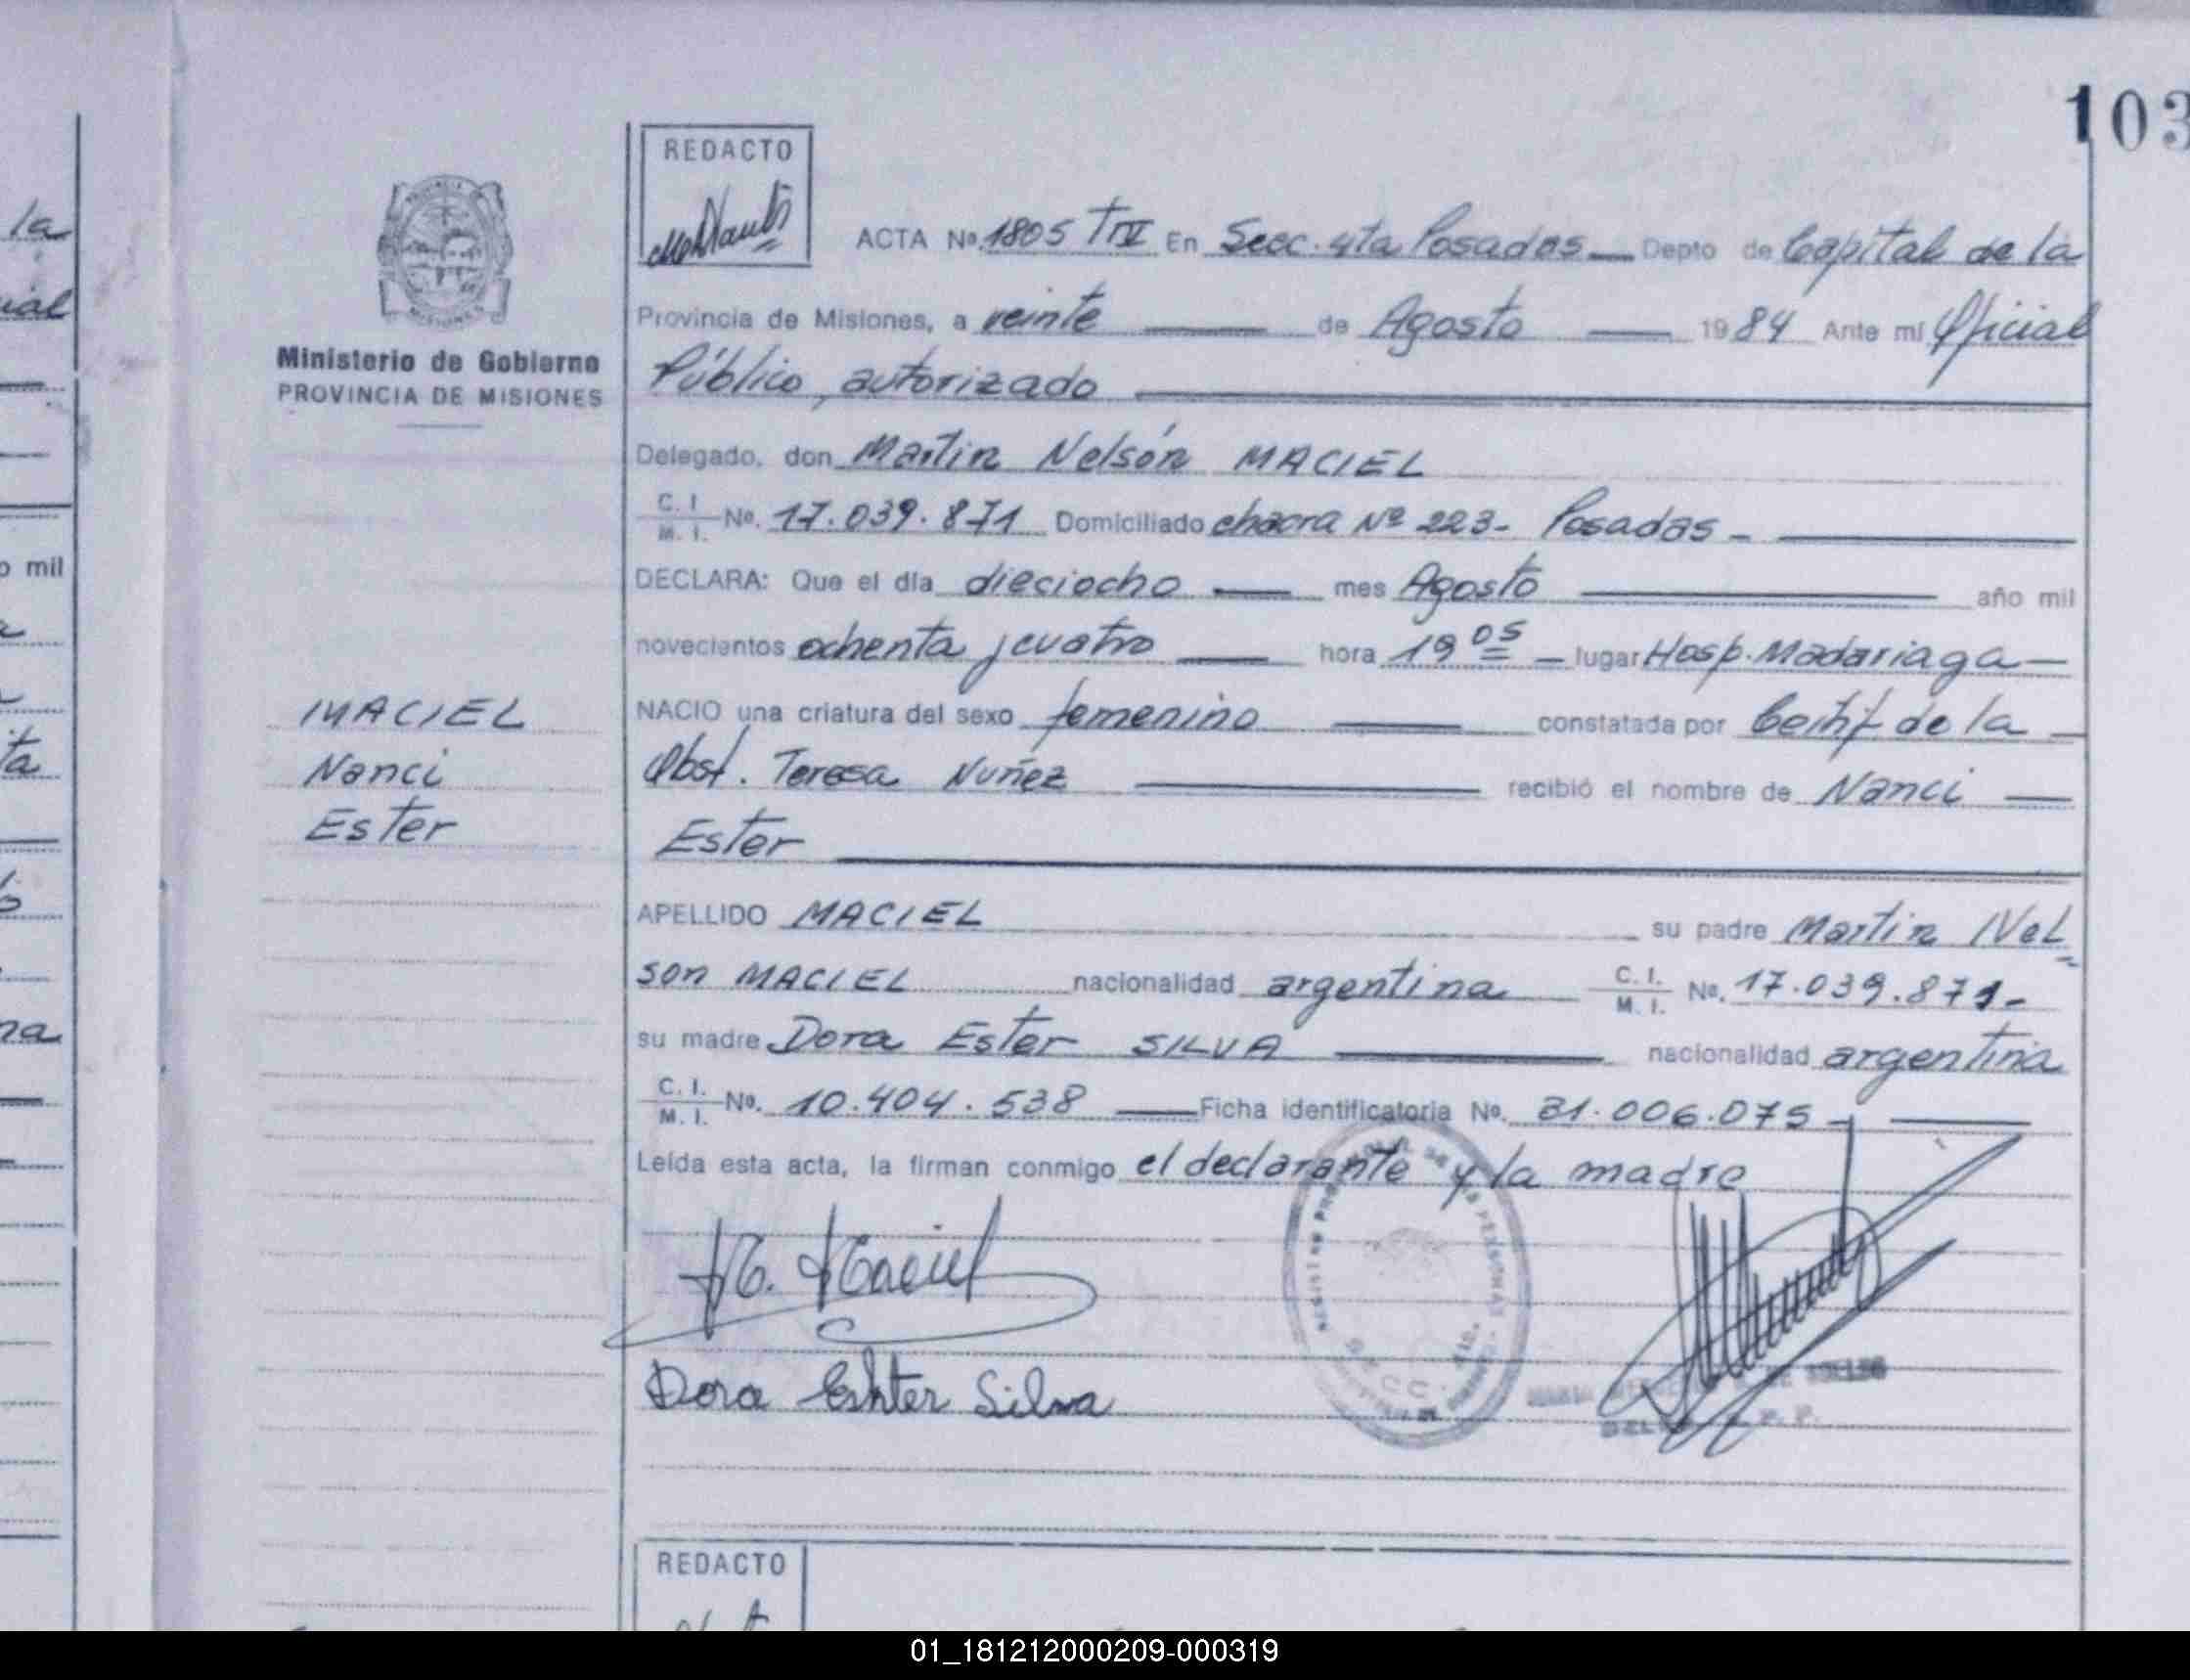 103
REDACTO
ACTA No. 1805 TIV En Secc. 4ta Posadas — Depto de Capital de la
Provincia de Misiones, a veinte — de Agosto — 1984 Ante mí Oficial
Público, autorizado
Ministerio de Gobierno
PROVINCIA DE MISIONES
Delegado, don Martin Nelsón MACIEL
C. I. M. I. No. 17.039.871 Domiciliado chacra Nº 223- Posadas -
DECLARA: Que el día dieciocho — mes Agosto — año mil
novecientos ochenta y cuatro — hora 19 05 — lugar Hosp. Madariaga —
NACIO una criatura del sexo femenino — constatada por Certif de la —
Obst. Teresa Nuñez — recibió el nombre de Nanci —
Ester
MACIEL
Nanci
Ester
APELLIDO MACIEL su padre Martin Nel
son MACIEL nacionalidad argentina C. I. M. I. No. 17.039.871-
su madre Dora Ester SILVA — nacionalidad argentina
C. I. M. I. No. 10.404.538 — Ficha identificatoria No. 31.006.075 -
Leída esta acta, la firman conmigo el declarante y la madre
Dora Eshter Silva
REDACTO
la
ial
o mil
ta
na
01_181212000209-000319